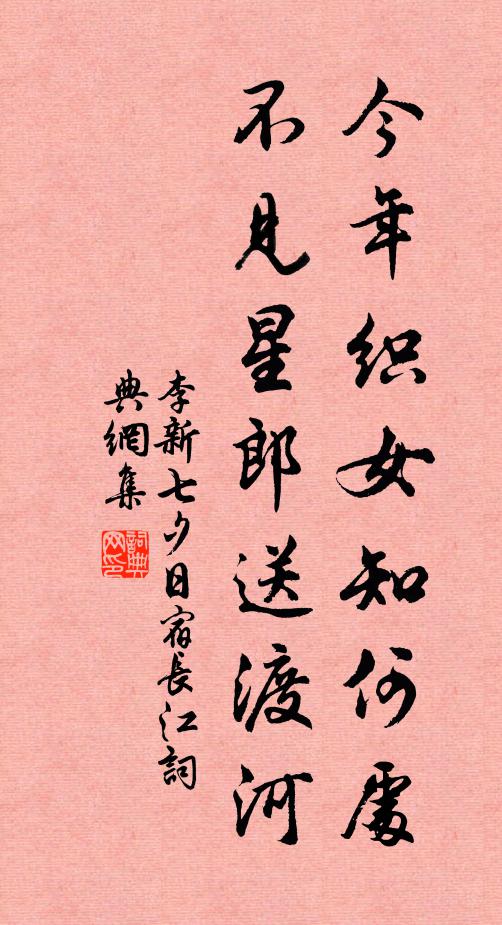 今年织女知何處
不见星郎送渡河
李新七夕日宿長江詞
典網集
詞典网印